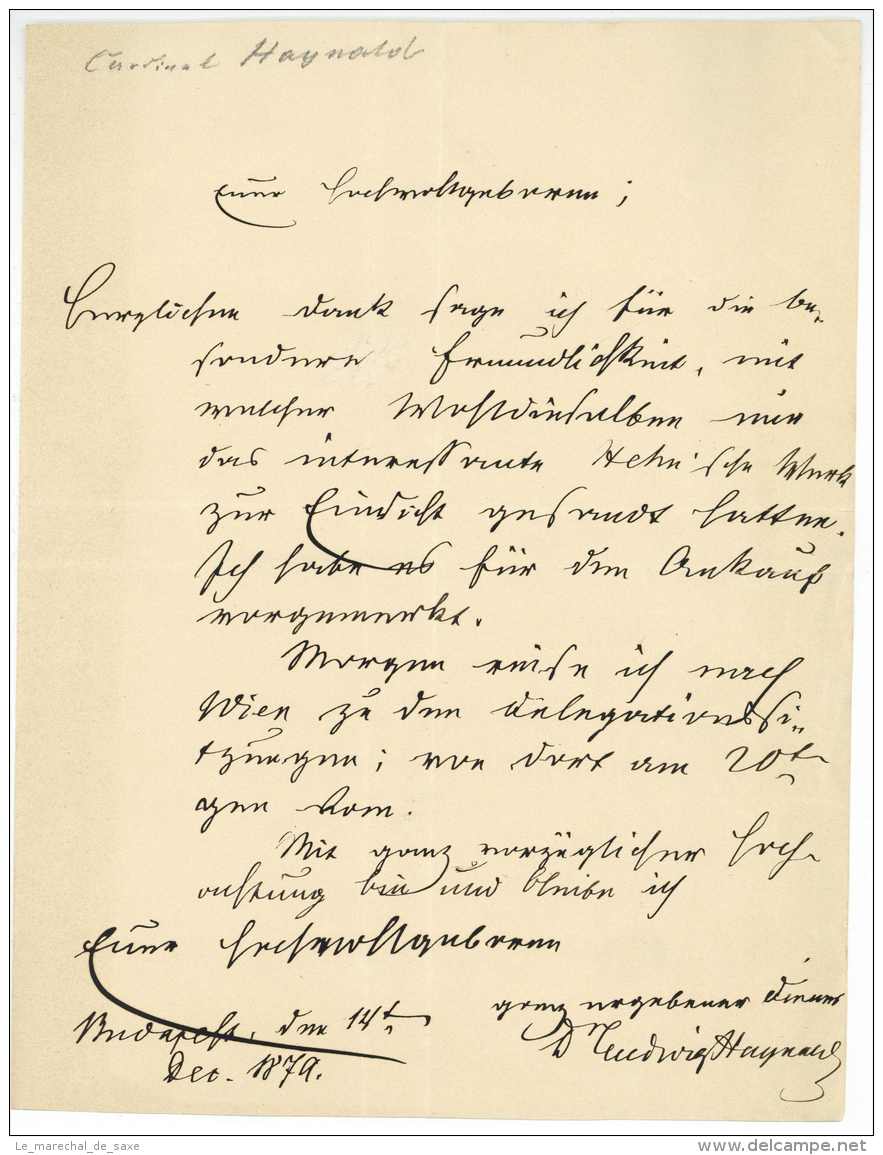 Cardinal Haynald
Euer Hochwohlgeboren;
Herzlichen Dank sage ich für die be-
sondere Freundlichkeit, mit
welcher Wohldieselben mir
das interessante Hehn'sche Werk
zur Einsicht gesandt hatten.
Ich habe es für den Ankauf
vorgemerkt.
Morgen reise ich nach
Wien zu den Delegationssi-
tzungen; von dort am 20t
gen Rom.
Mit ganz vorzüglicher Hoch-
achtung bin und bleibe ich
Euer Hochwohlgeboren
ganz ergebener Diener
Budapest, den 14t
Dr Ludwig Haynald
Dec. 1879.
Le_marechal_de_saxe
delcampe.net